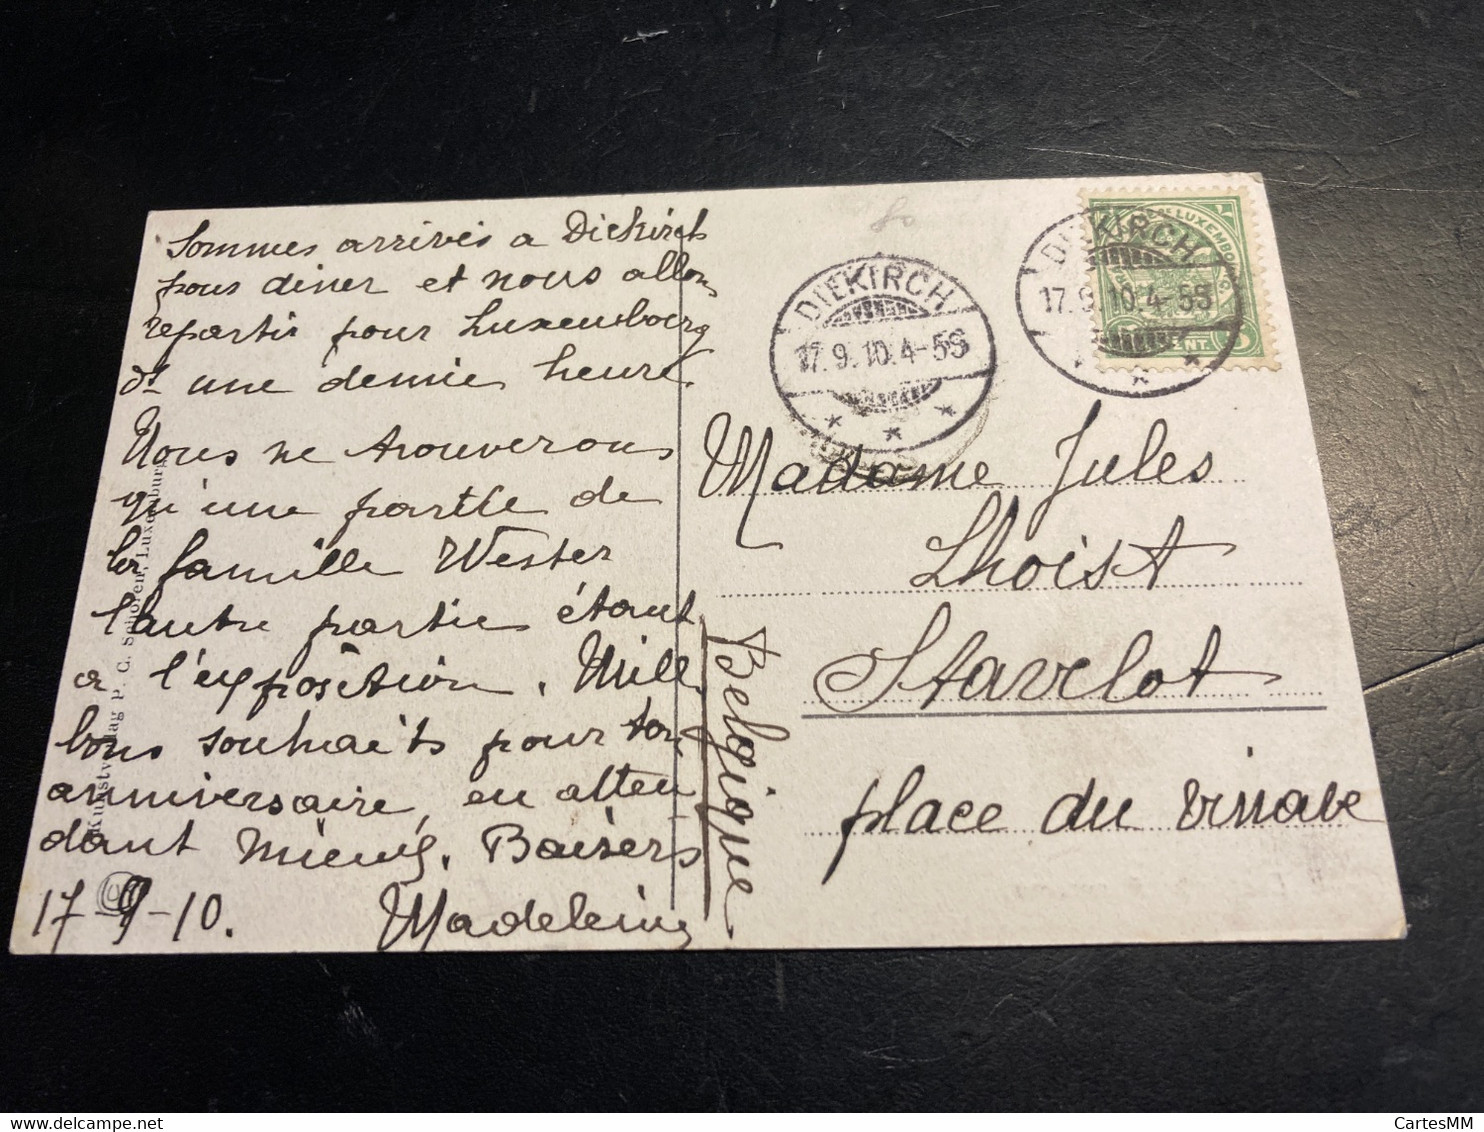 Sommes arrivés a Diekirch
pour diner et nous allons
repartir pour Luxembourg
ds une demie heure.
Nous ne trouverons
qu'une partie de
la famille Wester
l'autre partie étant
a l'exposition. Mille
bons souhaits pour ton
anniversaire, en atten
dant mieux. Baisers
17-9-10. Madeleine
Kunstverlag P. C. Schoren, Luxemburg
DIEKIRCH
17.9.10.4-5S
DIEKIRCH
17.9.10.4-5S
LUXEMBOURG
CENT.
Madame Jules
Lhoist
Stavelot
place du Vinave
Belgique
CartesMM